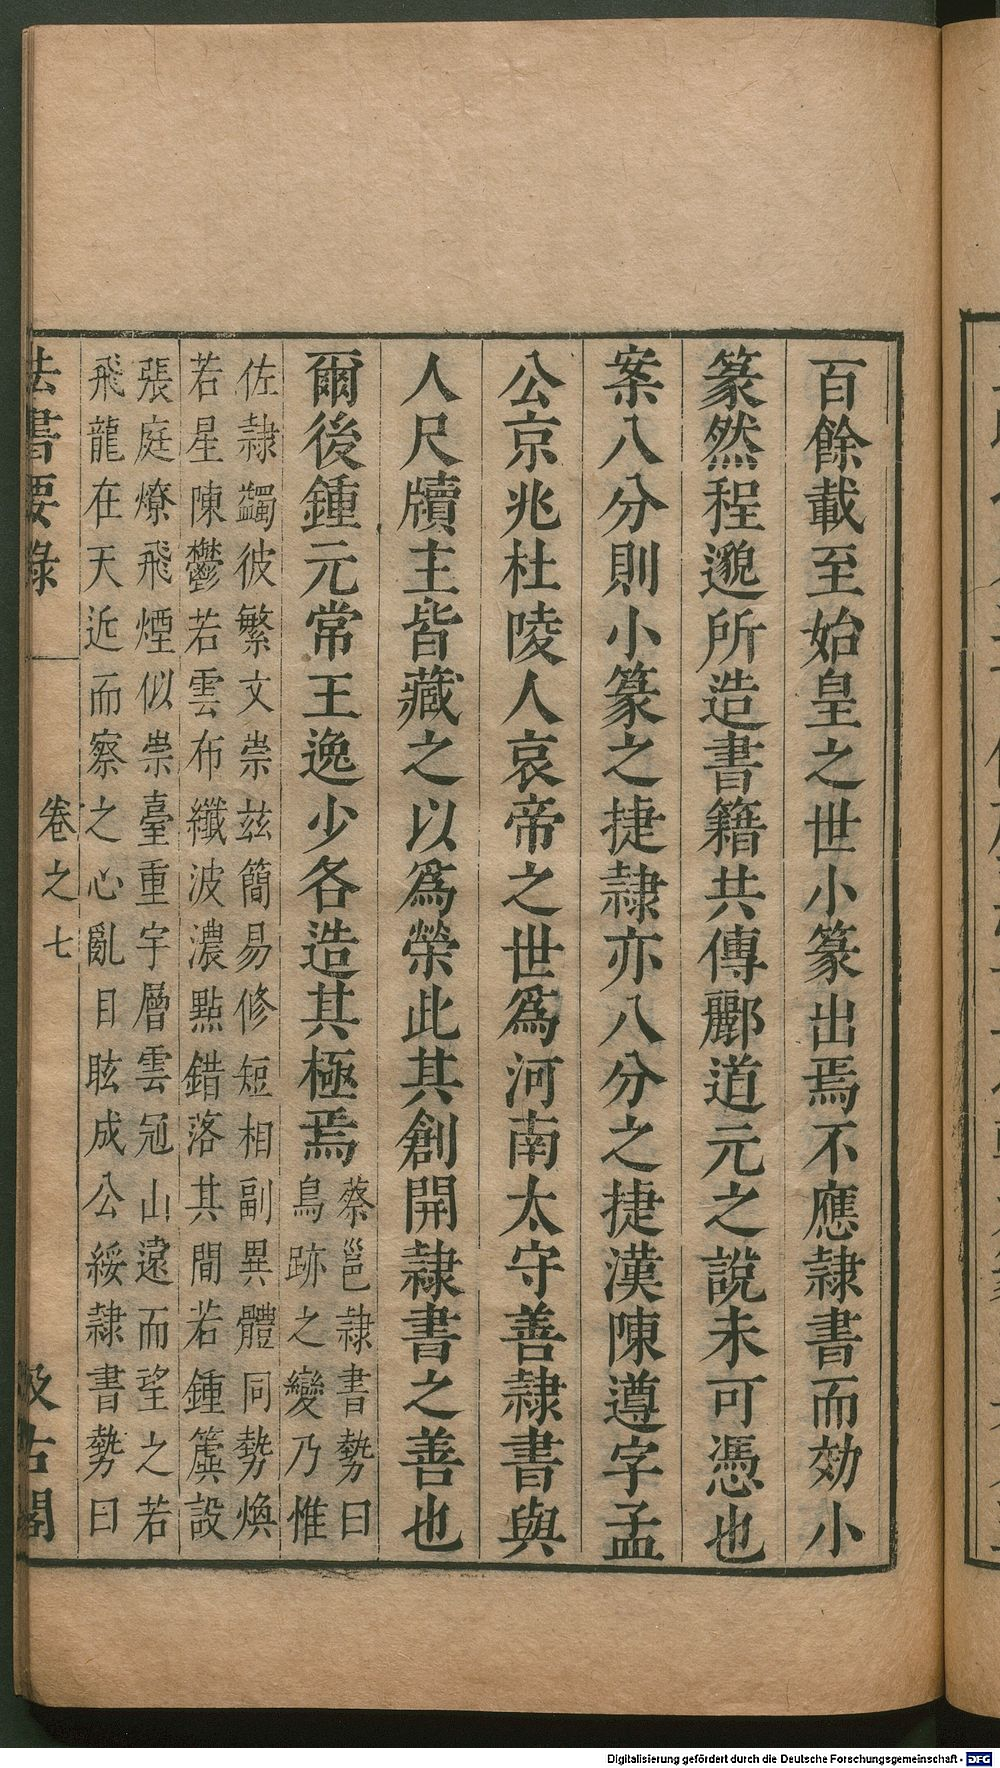 百餘載至始皇之世小篆出焉不應隸書而効小
篆然程邈所造書籍共傳酈道元之說未可憑也
案八分則小篆之捷隸亦八分之捷漢陳遵字孟
公京兆杜陵人哀帝之世爲河南太守善隸書與
人尺牘主皆藏之以爲榮此其創開隸書之善也
爾後鍾元常王逸少各造其極焉
蔡邕隸書勢曰
鳥跡之變乃惟
佐隸蠲彼繁文崇茲簡易修短相副異體同勢煥
若星陳鬱若雲布纖波濃點錯落其間若鍾簴設
張庭燎飛煙似崇臺重宇層雲冠山遠而望之若
飛龍在天近而察之心亂目眩成公綏隸書勢曰
法書要錄 卷之七 汲古閣
Digitalisierung gefördert durch die Deutsche Forschungsgemeinschaft - DFG